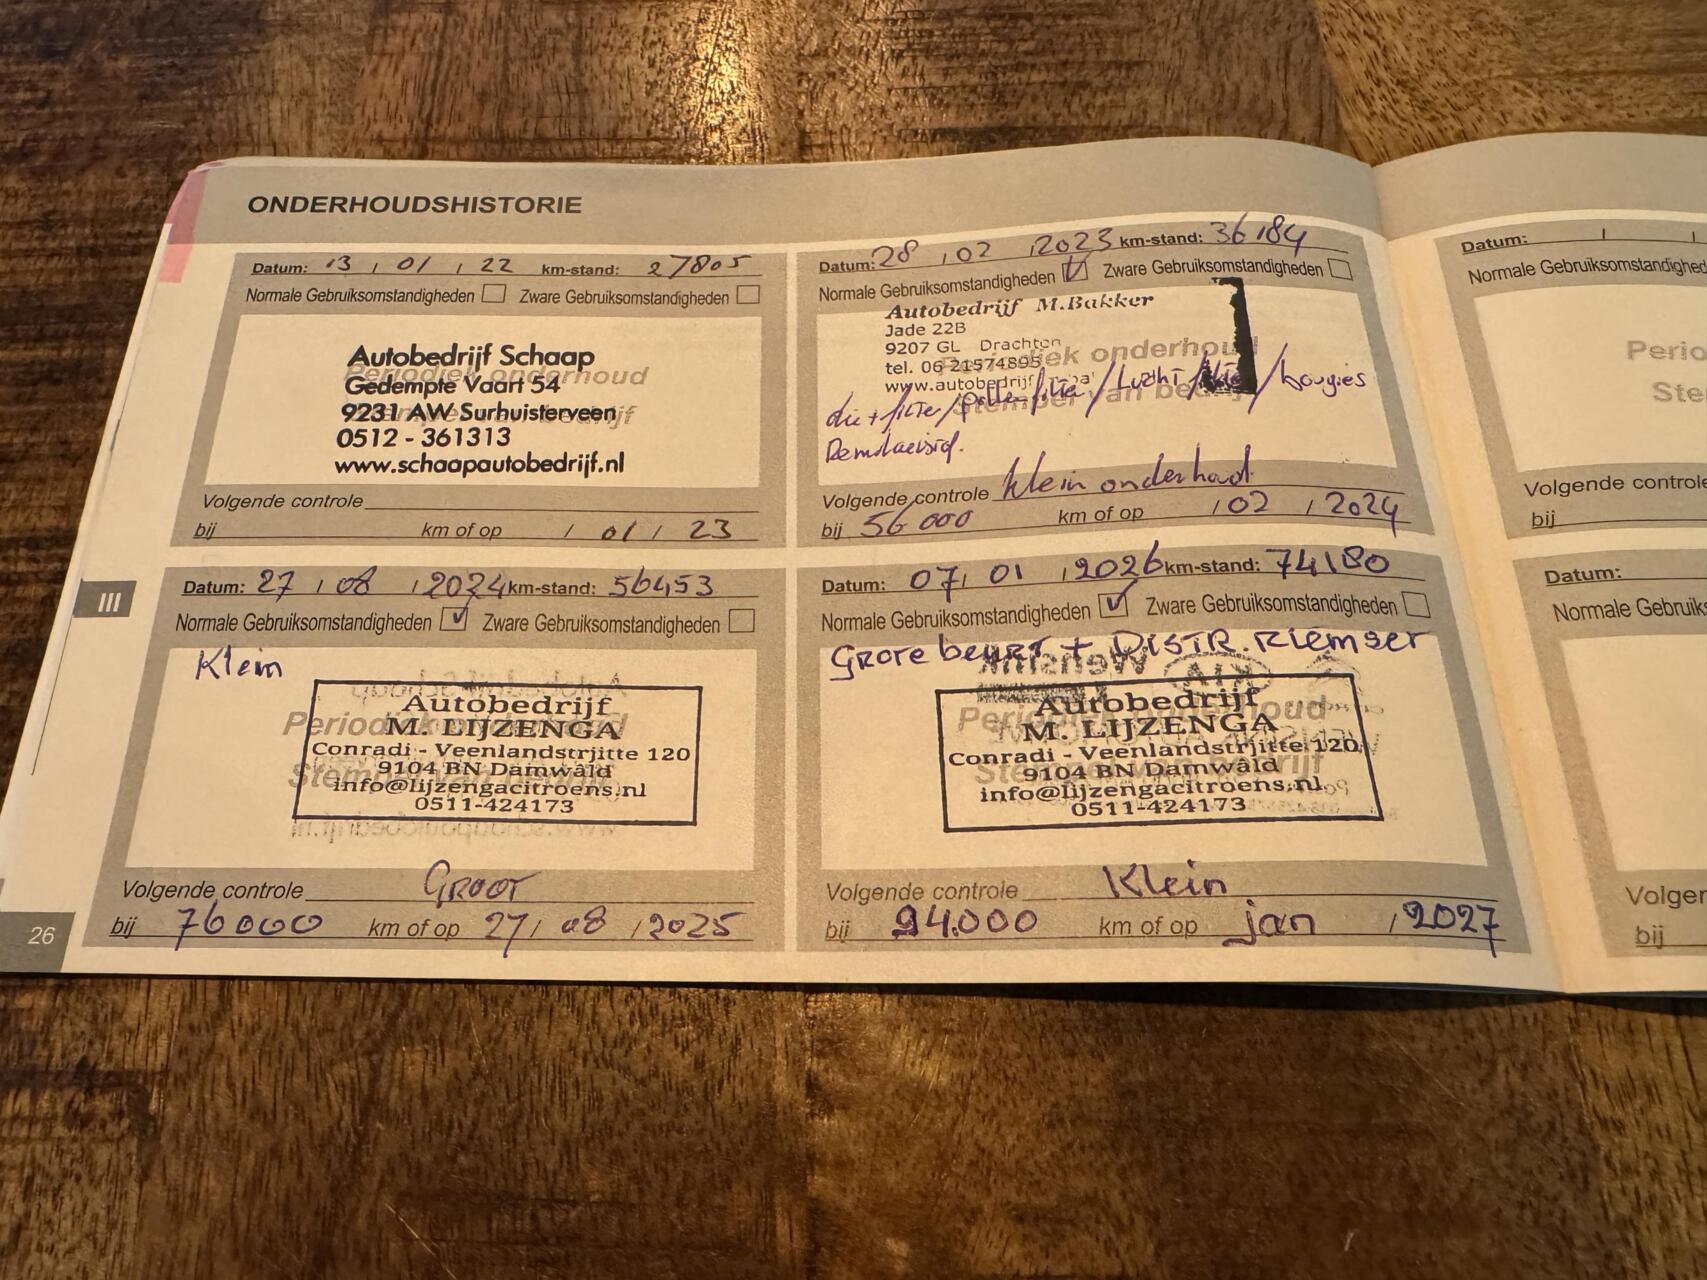 ONDERHOUDSHISTORIE
Datum: 13 / 01 / 22 km-stand: 27805
Normale Gebruiksomstandigheden Zware Gebruiksomstandigheden
Periodiek onderhoud
Autobedrijf Schaap
Gedempte Vaart 54
9231 AW Surhuisterveen
0512 - 361313
www.schaapautobedrijf.nl
Volgende controle
bij km of op / 01 / 23
Datum: 28 / 02 / 2023 km-stand: 36184
Normale Gebruiksomstandigheden Zware Gebruiksomstandigheden
Autobedrijf M.Bakker
Jade 22B
9207 GL Drachten
tel. 06 21574895
Periodiek onderhoud
www.autobedrijf
Stempel van bedrijf
filter / / / bougies
Volgende controle Klein onderhoud
bij 56 000 km of op / 02 / 2024
Datum: 27 / 08 / 2024 km-stand: 56453
Normale Gebruiksomstandigheden Zware Gebruiksomstandigheden
Klein
Periodiek onderhoud
Stempel van bedrijf
Autobedrijf
M. LIJZENGA
Conradi - Veenlandstrjitte 120
9104 BN Damwâld
info@lijzengacitroens.nl
0511-424173
Volgende controle Groot
bij 76000 km of op 27 / 08 / 2025
Datum: 07 / 01 / 2026 km-stand: 74180
Normale Gebruiksomstandigheden Zware Gebruiksomstandigheden
Grote beurt + DISTR. Riemset
Periodiek onderhoud
Stempel van bedrijf
Autobedrijf
M. LIJZENGA
Conradi - Veenlandstrjitte 120
9104 BN Damwâld
info@lijzengacitroens.nl
0511-424173
Volgende controle Klein
bij 94.000 km of op jan / 2027
III
26
Datum: / /
Normale Gebruiksomstandighed
Perio
Ste
Volgende controle
bij
Datum:
Normale Gebruiks
Volgen
bij